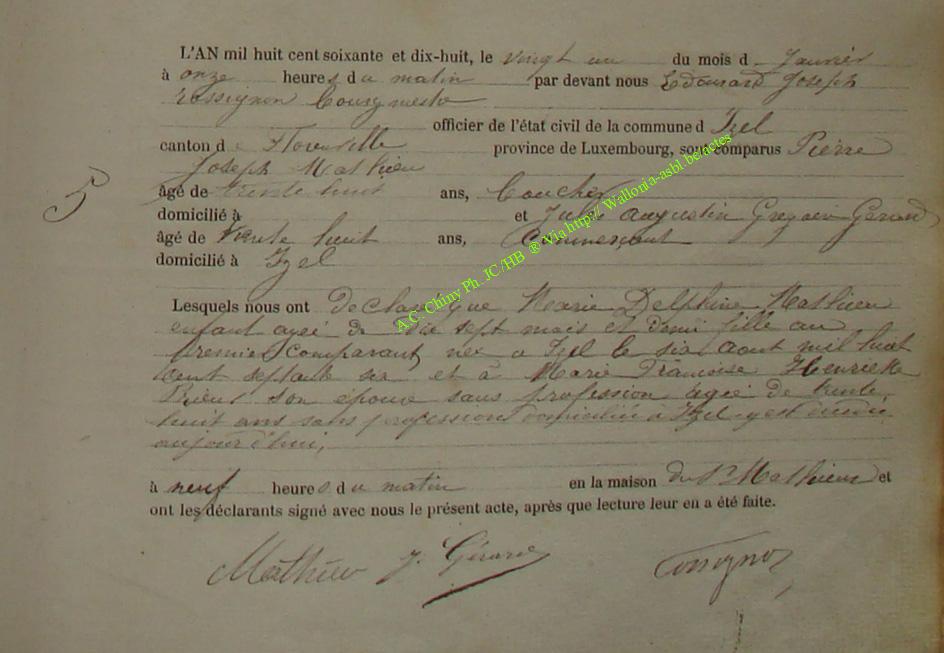 L'AN mil huit cent soixante et dix-huit, le vingt un du mois d Janvier
à onze heures du matin par devant nous Edouard Joseph
rossignon Bourgmestre
officier de l'état civil de la commune d Izel
canton d Florenville province de Luxembourg, sont comparus Pierre
Joseph Mathieu
âgé de trente huit ans,
domicilié à et Jules Augustin Gérard
âgé de trente huit ans, Commerçant
domicilié à Izel
Lesquels nous ont Declaré que Marie Delphine Mathieu
enfant agée de dix sept mois et demi fille au
premier comparant, nee a Izel le six aout mil huit
cent septante six et à Marie Françoise Henriette
son épouse sans profession agée de trente
huit ans sans profession domiciliée à Izel y est décédée
aujourd'hui,
à neuf heures du matin en la maison du Sr Mathieu et
ont les déclarants signé avec nous le présent acte, après que lecture leur en a été faite.
Mathieu J. Gérard Rossignon
5
A.C. Chiny Ph. JC/HB ® Via http// Wallonia-asbl.be/actes